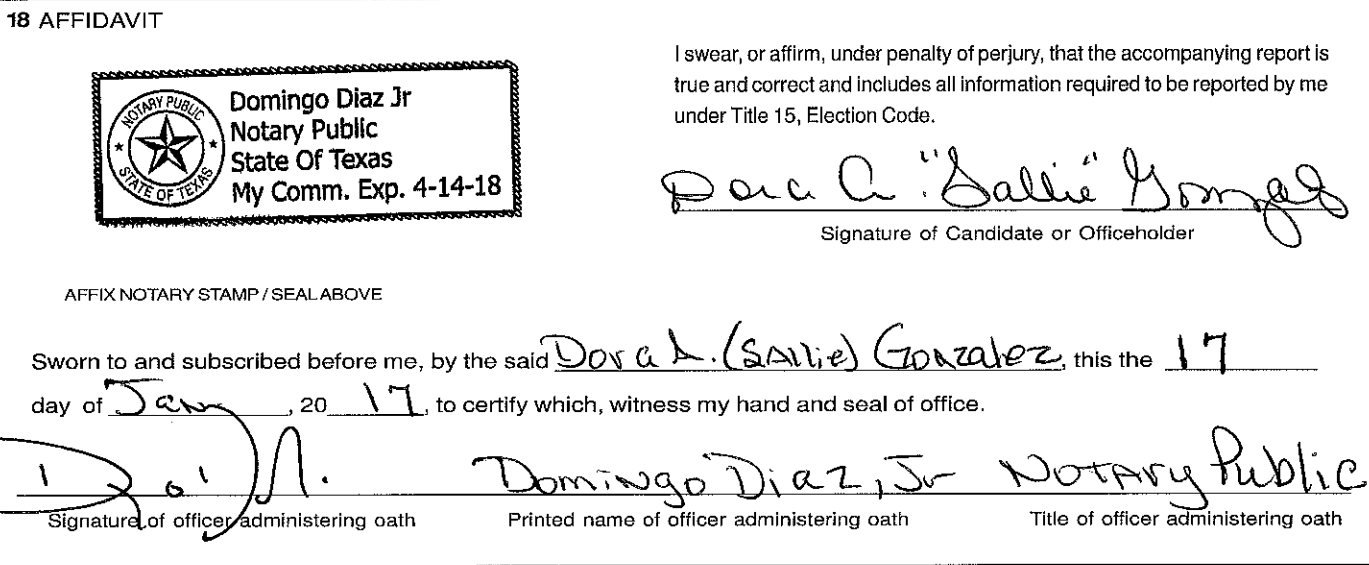 18 AFFIDAVIT
NOTARY PUBLIC
STATE OF TEXAS
Domingo Diaz Jr
Notary Public
State Of Texas
My Comm. Exp. 4-14-18
I swear, or affirm, under penalty of perjury, that the accompanying report is
true and correct and includes all information required to be reported by me
under Title 15, Election Code.
Dora A. "Sallie" Gonzalez
Signature of Candidate or Officeholder
AFFIX NOTARY STAMP / SEAL ABOVE
Sworn to and subscribed before me, by the said Dora A. (SAllie) Gonzalez, this the 17
day of Jan, 20 17, to certify which, witness my hand and seal of office.
Domingo Diaz, Jr NOTARY Public
Signature of officer administering oath Printed name of officer administering oath Title of officer administering oath